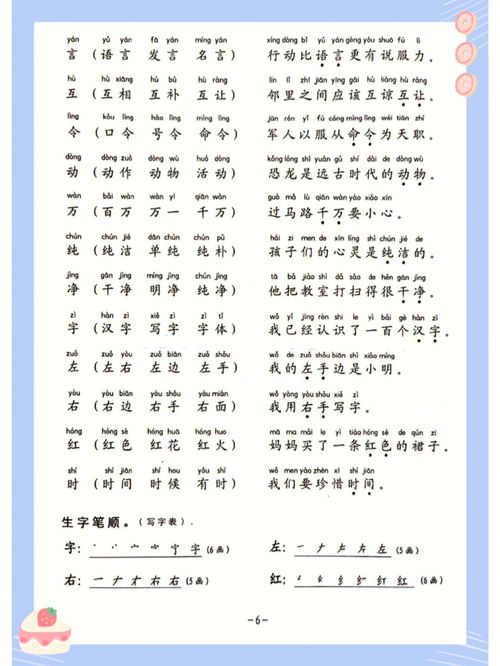 yán yǔ yán fā yán míng yán xíng dòng bǐ yǔ yán gèng yǒu shuō fú lì
言（语言 发言 名言） 行动比语言更有说服力。
hù hù xiāng hù bǔ hù ràng lín lǐ zhī jiān yīng gāi hù liàng hù ràng
互（互相 互补 互让） 邻里之间应该互谅互让。
lìng kǒu lìng hào lìng mìng lìng jūn rén yǐ fú cóng mìng lìng wéi tiān zhí
令（口令 号令 命令） 军人以服从命令为天职。
dòng dòng zuò dòng wù huó dòng kǒng lóng shì yuǎn gǔ shí dài de dòng wù
动（动作 动物 活动） 恐龙是远古时代的动物。
wàn bǎi wàn wàn yī qiān wàn guò mǎ lù qiān wàn yào xiǎo xīn
万（百万 万一 千万） 过马路千万要小心。
chún chún jié dān chún chún pǔ hái zi men de xīn líng shì chún jié de
纯（纯洁 单纯 纯朴） 孩子们的心灵是纯洁的。
jìng gān jìng míng jìng chún jìng tā bǎ jiào shì dǎ sǎo de hěn gān jìng
净（干净 明净 纯净） 他把教室打扫得很干净。
zì hàn zì xiě zì zì tǐ wǒ yǐ jīng rèn shi le yì bǎi gè hàn zì
字（汉字 写字 字体） 我已经认识了一百个汉字。
zuǒ zuǒ yòu zuǒ biān zuǒ shǒu wǒ de zuǒ shǒu biān shì xiǎo míng
左（左右 左边 左手） 我的左手边是小明。
yòu yòu biān yòu shǒu yòu miàn wǒ yòng yòu shǒu xiě zì
右（右边 右手 右面） 我用右手写字。
hóng hóng sè hóng huā hóng huǒ mā ma mǎi le yì tiáo hóng sè de qún zi
红（红色 红花 红火） 妈妈买了一条红色的裙子。
shí shí jiān shí hou yǒu shí wǒ men yào zhēn xī shí jiān
时（时间 时候 有时） 我们要珍惜时间。
生字笔顺。（写字表）
字： 字（6画） 左： 左（5画）
右： 右（5画） 红： 红（6画）
-6-